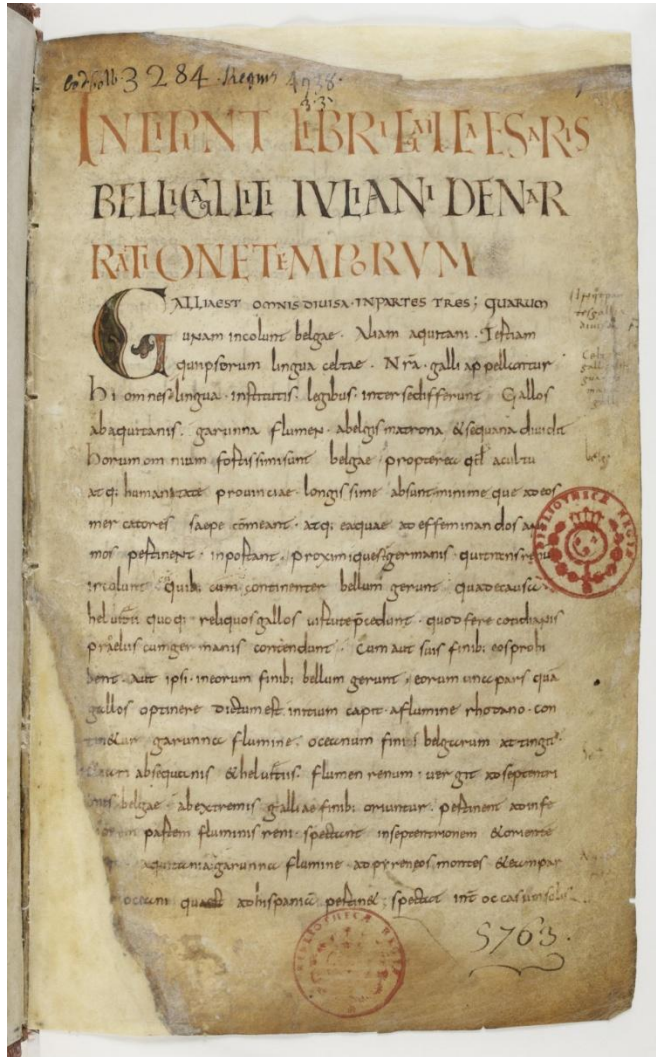 Cod. Colb. 3284. Regius 4738.
4.3.
INCIPIUNT LIBRI GAII CAESARIS
BELLI GALLICI IULIANI DE NAR
RATIONE TEMPORUM
GALLIA EST OMNIS DIVISA · IN PARTES TRES; QUARUM
UNAM incolunt belgae · Aliam aquitani · Tertiam
qui ipsorum lingua celtae · Nrã · galli appellantur
hi omnes lingua · institutis · legibus · inter se differunt Gallos
ab aquitanis · garunna flumen · a belgis matrona & sequana dividit
horum omnium fortissimi sunt belgae propterea qđ a cultu
atq; humanitate provinciae longissime absunt minime que ad eos
mercatores saepe cõmeant · atq; ea quae ad effeminandos ani
mos pertinent · inportant · proximique s· germanis · qui trans renu
incolunt Quib; cum continenter bellum gerunt qua de causa
helvetii quoq; reliquos gallos virtute p̃cedunt · quod fere cotidianis
praeliis cum germanis contendunt · Cum aut suis finib; eos prohi
bent · aut ipsi · in eorum finib; bellum gerunt · eorum una pars quã
gallos optinere dictum est initium capit · a flumine rhodano · con
tin&ur garunna flumine · oceanum finis belgarum attingit ·
ab sequanis & helvetiis · flumen renum · vergit ad septentri
belgae · ab extremis galliae finib; oriuntur · pertinent ad infe
partem fluminis reni · spectant in septentrionem & oriente
aquitania garunna flumine ad pyreneos montes & eam par
oceani quae ad hispaniã pertin&; spectat int̃ occasum solis
BIBLIOTHECÆ REGIÆ
BIBLIOTHECÆ REGIÆ
5763.